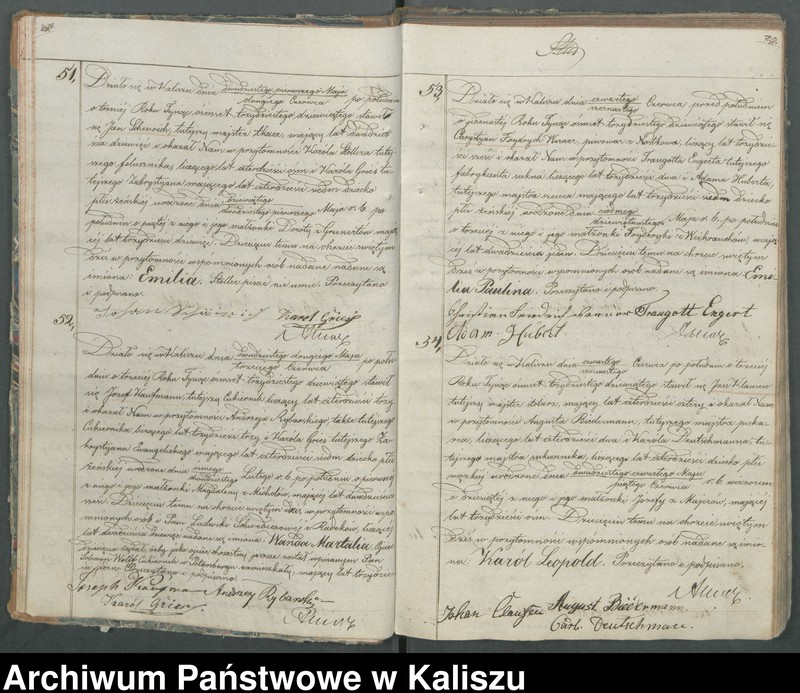 51,
Działo się w Kaliszu dnia dwudziestego pierwszego Maja
drugiego Czerwca po południu
o trzeciej Roku Tysiąc ośmset trzydziestego dziewiątego stawił
się Jan tutejszy majster tkacz, mający lat dwadzieścia
dziewięć i okazał Nam w przytomności Karola Stellera tutejszego
folusznika, liczącego lat czterdzieści ośm i Karola tutejszego
Zakrystyana mającego lat czterdzieści siedm dziecko
płci żeńskiej urodzone dnia dziewiątego
dwudziestego pierwszego Maja r. b. po
południu o piątej z niego i jego małżonki Doroty z mającej
lat trzydzieści dziewięć. Dziecięciu temu na chrzcie świętym
dziś w przytomności wspomnionych osób nadane
imiona: Emilia. Steller pisać nie umie. Przeczytano
i podpisano.
Karol
52,
Działo się w Kaliszu dnia dwudziestego drugiego Maja
trzeciego Czerwca po południu
o trzeciej Roku Tysiąc ośmset trzydziestego dziewiątego stawił
się Józef Kaufmann, tutejszy Cukiernik liczący lat czterdzieści trzy
i okazał Nam w przytomności Andrzeja Rybarskiego, także tutejszego
Cukiernika liczącego lat trzydzieści trzy i Karola tutejszego Zakrystyana
Ewangelickiego mającego lat czterdzieści siedm dziecko płci
żeńskiej urodzone dnia ósmego
dwudziestego Lutego r. b. po południu o pierwszej
z niego i jego małżonki Magdaleny z mającej lat dwadzieścia
Dziecięciu temu na chrzcie świętym dziś w przytomności wspomnionych
osób i Pani Ludwiki z Radeków, liczącej
lat nadane są imiona: Wanda Matalia.
Przeczytano i podpisano.
Joseph
Andrzej Rybarski
Karol
53,
Działo się w Kaliszu dnia czwartego
szesnastego Czerwca przed południem
o jedenastej Roku Tysiąc ośmset trzydziestego dziewiątego stawił się
Chrystyan Frydrych Werner, piwowar z Noskowa, liczący lat trzydzieści
sześć i okazał Nam w przytomności Traugotta Engerta tutejszego
fabrykanta sukna liczącego lat trzydzieści dwa i Adama Huberta,
tutejszego majstra mającego lat trzydzieści siedm dziecko
płci żeńskiej urodzone dnia siódmego
dziewiętnastego Maja r. b. po południu
o trzeciej z niego i jego małżonki Frydryki z Weihrauchów, mającej
lat dwadzieścia pięć. Dziecięciu temu na chrzcie świętym
dziś w przytomności wspomnionych osób nadane są imiona Emilia
Paulina. Przeczytano i podpisano.
Christian Friedrich Werner Traugott Engert
Adam Hubert
54,
Działo się w Kaliszu dnia czwartego
szesnastego Czerwca po południu o trzeciej
Roku Tysiąc ośmset trzydziestego dziewiątego stawił się Jan Klausen
tutejszy majster stolarz, mający lat czterdzieści cztery i okazał Nam
w przytomności Augusta Biedermann, tutejszego majstra piekarza,
liczącego lat czterdzieści dwa i Karola Deutschmanna, tutejszego
majstra sukiennika, liczącego lat czterdzieści dziecko płci
męzkiej urodzone dnia dwudziestego czwartego Maja
piątego Czerwca r. b. wieczorem
o dziewiątej z niego i jego małżonki Józefy z Majerów, mającej
lat trzydzieści ośm. Dziecięciu temu na chrzcie świętym
dziś w przytomności wspomnionych osób nadane są imiona
Karól Leopold. Przeczytano i podpisano.
Johan Clausen August Biedermann
Carl Deutschman.
Archiwum Państwowe w Kaliszu